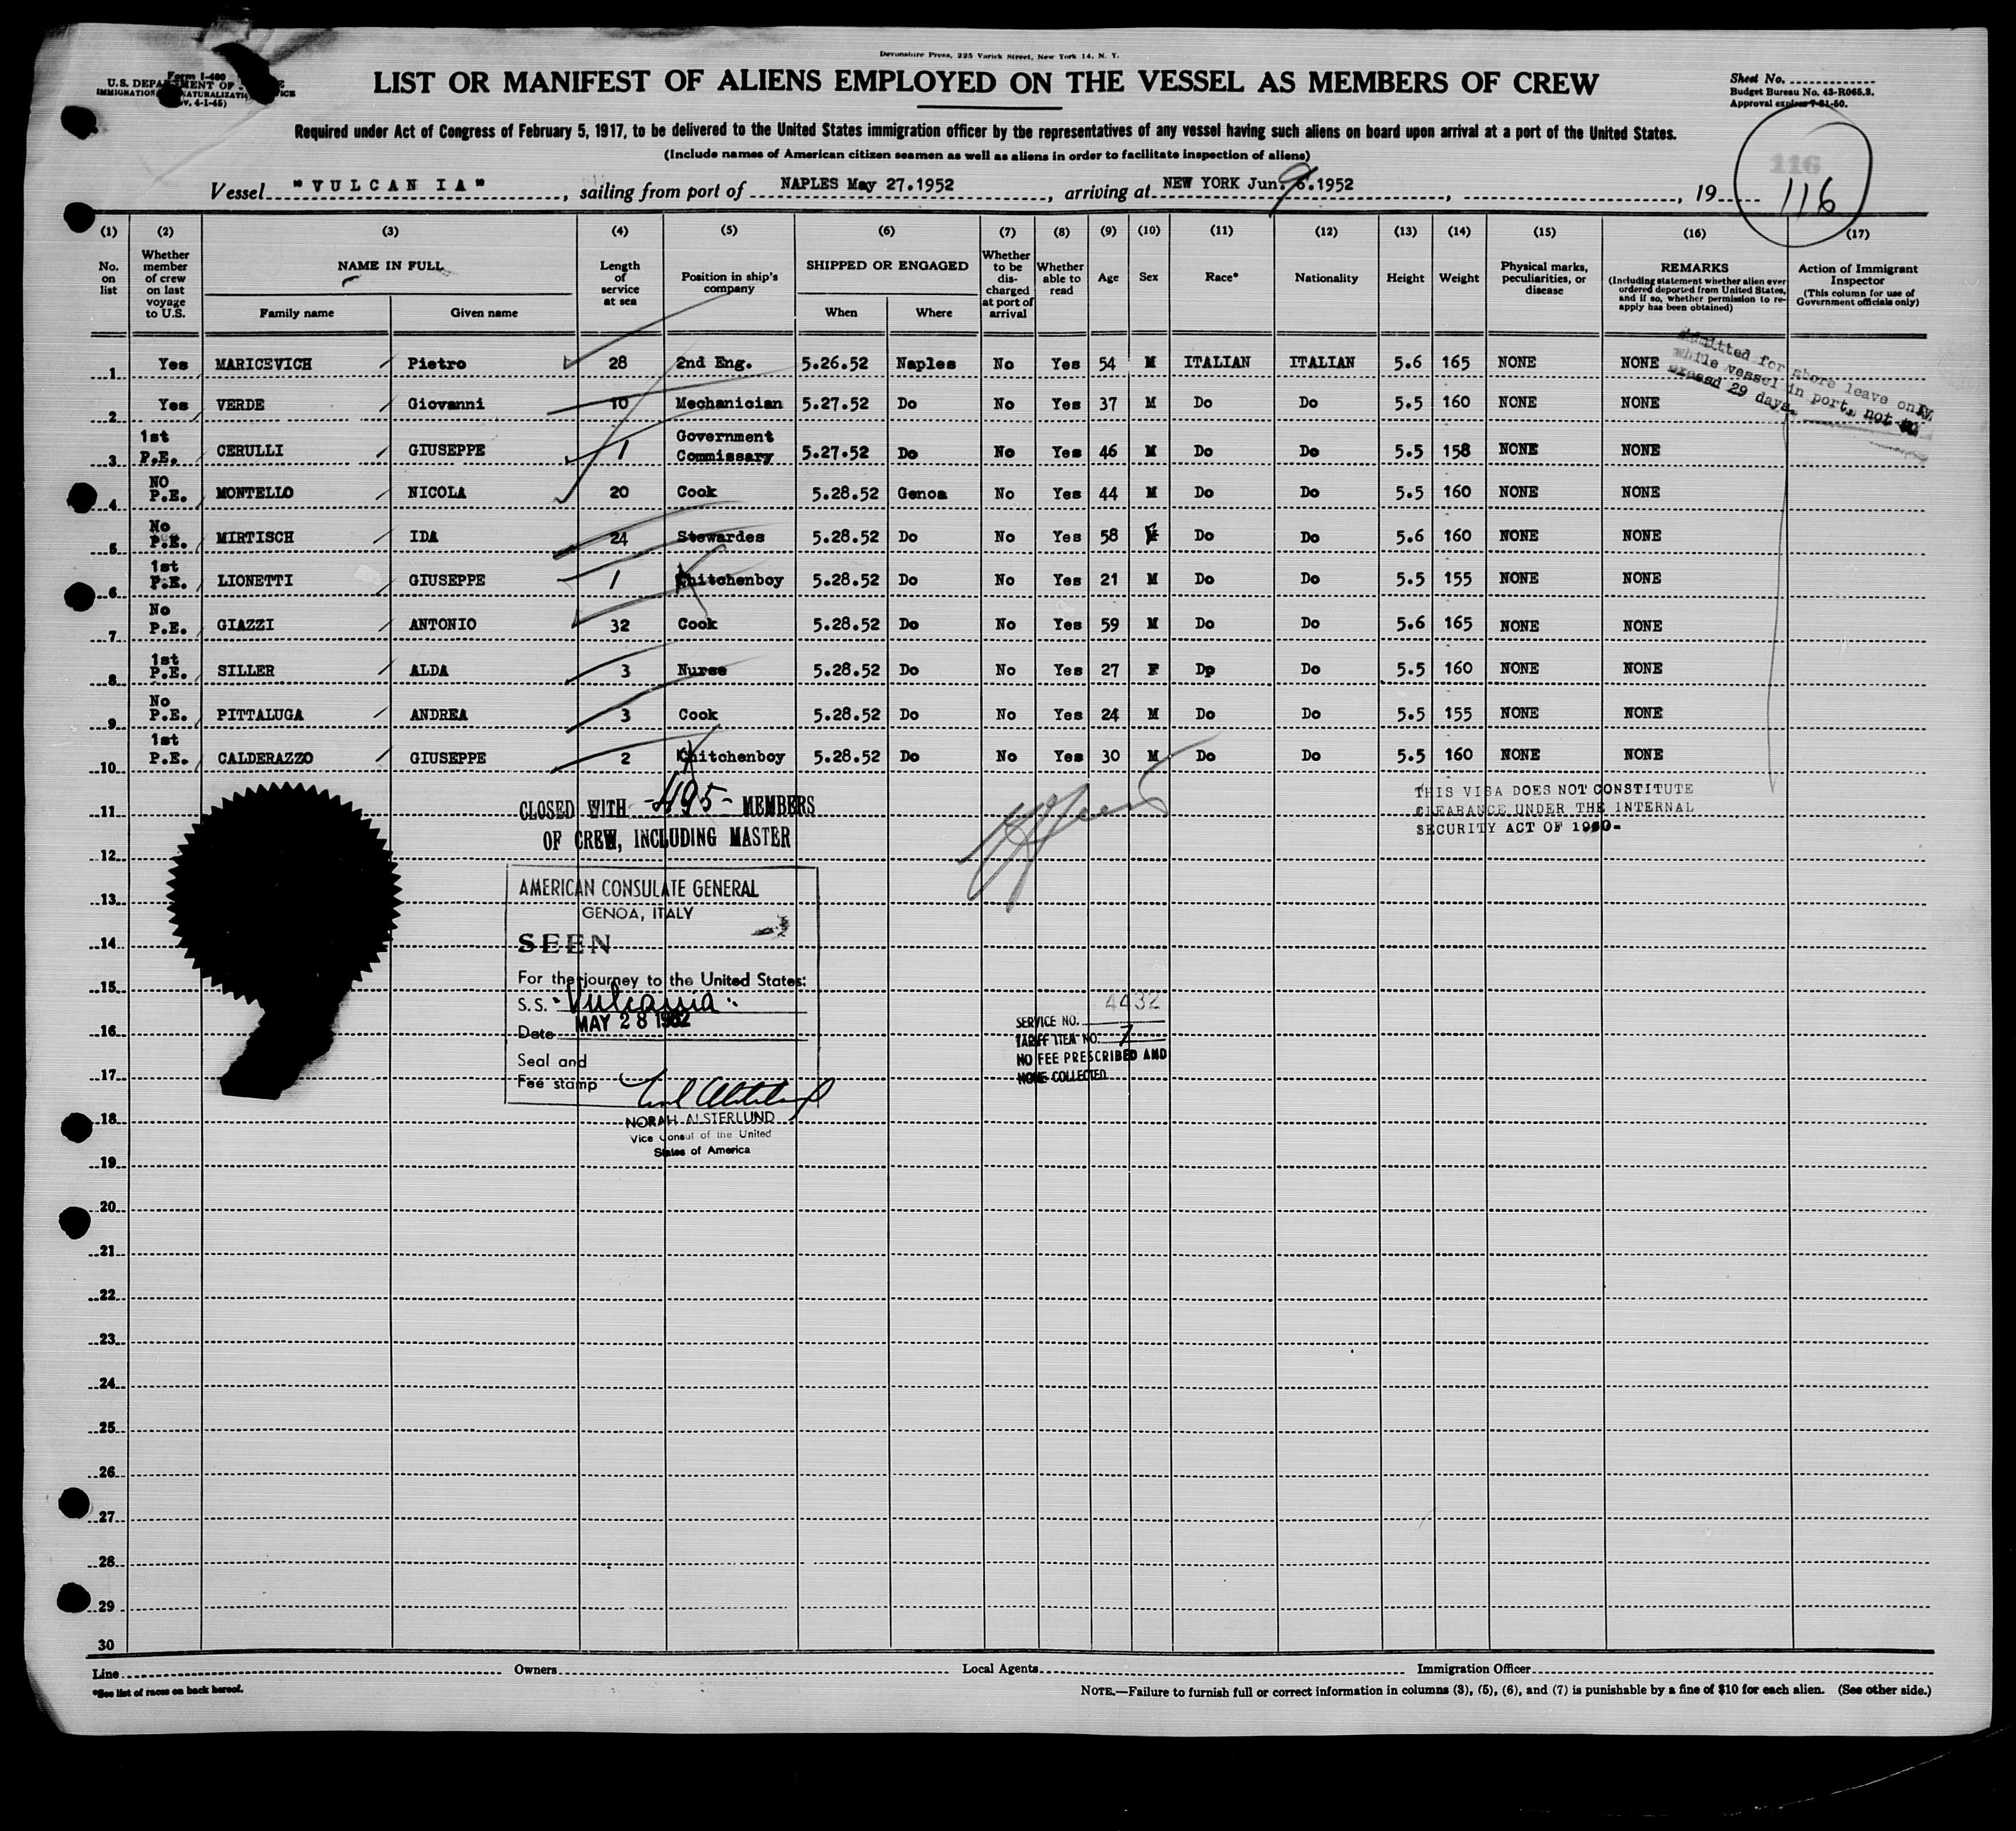 Devonshire Press, 225 Varick Street, New York 14, N. Y.
Form I-480
U.S. DEPARTMENT OF
IMMIGRATION NATURALIZATION SERVICE
4-1-45)
LIST OR MANIFEST OF ALIENS EMPLOYED ON THE VESSEL AS MEMBERS OF CREW
Sheet No.
Budget Bureau No. 43-R065.3.
Approval expires 7-31-50.
Required under Act of Congress of February 5, 1917, to be delivered to the United States immigration officer by the representatives of any vessel having such aliens on board upon arrival at a port of the United States.
(Include names of American citizen seamen as well as aliens in order to facilitate inspection of aliens)
116
116
Vessel "VULCAN IA", sailing from port of NAPLES May 27.1952, arriving at NEW YORK Jun. 9.1952, , 19
(1) (2) (3) (4) (5) (6) (7) (8) (9) (10) (11) (12) (13) (14) (15) (16) (17)
No. on list
Whether member of crew on last voyage to U.S.
NAME IN FULL
Family name
Given name
Length of service at sea
Position in ship's company
SHIPPED OR ENGAGED
When
Where
Whether to be discharged at port of arrival
Whether able to read
Age
Sex
Race*
Nationality
Height
Weight
Physical marks, peculiarities, or disease
REMARKS
(Including statement whether alien ever ordered deported from United States, and if so, whether permission to re-apply has been obtained)
Action of Immigrant Inspector
(This column for use of Government officials only)
1 Yes MARICEVICH Pietro 28 2nd Eng. 5.26.52 Naples No Yes 54 M ITALIAN ITALIAN 5.6 165 NONE NONE
Admitted for shore leave only
while vessel in port, not to
exceed 29 days.
2 Yes VERDE Giovanni 10 Mechanician 5.27.52 Do No Yes 37 M Do Do 5.5 160 NONE NONE
3 1st P.E. CERULLI GIUSEPPE 1 Government Commissary 5.27.52 Do No Yes 46 M Do Do 5.5 158 NONE NONE
4 NO P.E. MONTELLO NICOLA 20 Cook 5.28.52 Genoa No Yes 44 M Do Do 5.5 160 NONE NONE
5 No P.E. MIRTISCH IDA 24 Stewardes 5.28.52 Do No Yes 58 F Do Do 5.6 160 NONE NONE
6 1st P.E. LIONETTI GIUSEPPE 1 Khitchenboy 5.28.52 Do No Yes 21 M Do Do 5.5 155 NONE NONE
7 No P.E. GIAZZI ANTONIO 32 Cook 5.28.52 Do No Yes 59 M Do Do 5.6 165 NONE NONE
8 1st P.E. SILLER ALDA 3 Nurse 5.28.52 Do No Yes 27 F Dp Do 5.5 160 NONE NONE
9 No P.E. PITTALUGA ANDREA 3 Cook 5.28.52 Do No Yes 24 M Do Do 5.5 155 NONE NONE
10 1st P.E. CALDERAZZO GIUSEPPE 2 Khitchenboy 5.28.52 Do No Yes 30 M Do Do 5.5 160 NONE NONE
11
12
13
14
15
16
17
18
19
20
21
22
23
24
25
26
27
28
29
30
CLOSED WITH -495- MEMBERS
OF CREW, INCLUDING MASTER
THIS VISA DOES NOT CONSTITUTE
CLEARANCE UNDER THE INTERNAL
SECURITY ACT OF 1950-
AMERICAN CONSULATE GENERAL
GENOA, ITALY
SEEN
For the journey to the United States:
S.S. "Vulcania"
Date MAY 28 1952
Seal and
Fee stamp
NORAH ALSTERLUND
Vice Consul of the United
States of America
SERVICE NO. 4432
TARIFF ITEM NO. 7
NO FEE PRESCRIBED AND
NONE COLLECTED
Line Owners Local Agents Immigration Officer
*See list of races on back hereof.
NOTE.—Failure to furnish full or correct information in columns (3), (5), (6), and (7) is punishable by a fine of $10 for each alien. (See other side.)